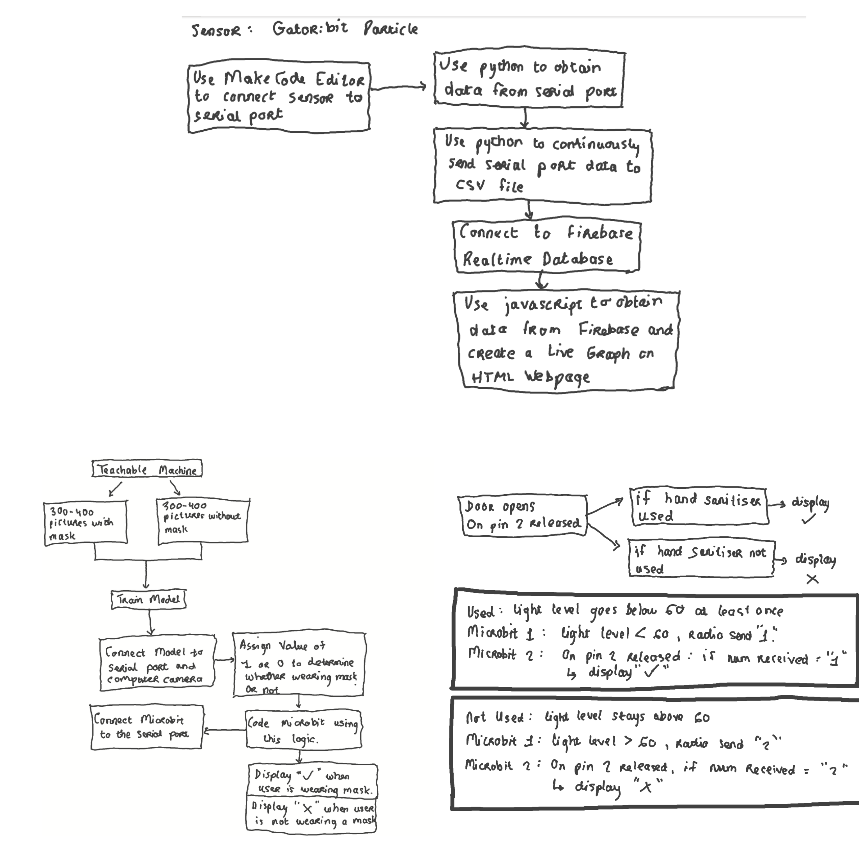 Sensor: Gator:bit Particle
Use MakeCode Editor
to connect sensor to
serial port
Use python to obtain
data from serial port
Use python to continuously
send serial port data to
CSV file
Connect to Firebase
Realtime Database
Use javascript to obtain
data from Firebase and
create a Live Graph on
HTML Webpage
Teachable Machine
300-400
pictures with
mask
300-400
pictures without
mask
Train Model
Connect Model to
Serial port and
computer camera
Assign Value of
1 or 0 to determine
whether wearing mask
or not
Connect Microbit
to the serial port
Code microbit using
this logic.
Display "✓" when
user is wearing mask.
Display "X" when user
is not wearing a mask
Door opens
On pin 2 released
if hand sanitiser
used
display
✓
if hand sanitiser not
used
display
X
Used: light level goes below 60 at least once
Microbit 1: light level < 60, Radio send "1"
Microbit 2: On pin 2 released: if num received = "1"
↳ display "✓"
Not Used: light level stays above 60
Microbit 1: light level > 60, radio send "2"
Microbit 2: On pin 2 released, if num received = "2"
↳ display "X"